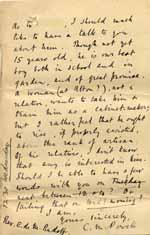 As to , I should much
like to have a talk to you
about him. Though not yet
15 years old, he is our best
boy both in school and in
garden, and of great promise.
A woman (at Alton?), not a
relation, wants to take him &
train him as a cabinet maker
but I rather feel that he ought
to rise, if properly assisted,
above the rank of artisan.
Of his relations, I don't know
that any is interested in him.
Should I be able to have a few
words with you on Tuesday
next between
failing that on Wed. morning
I am,
Yours sincerely,
C. M.
Rev. E. de M. Rudolf